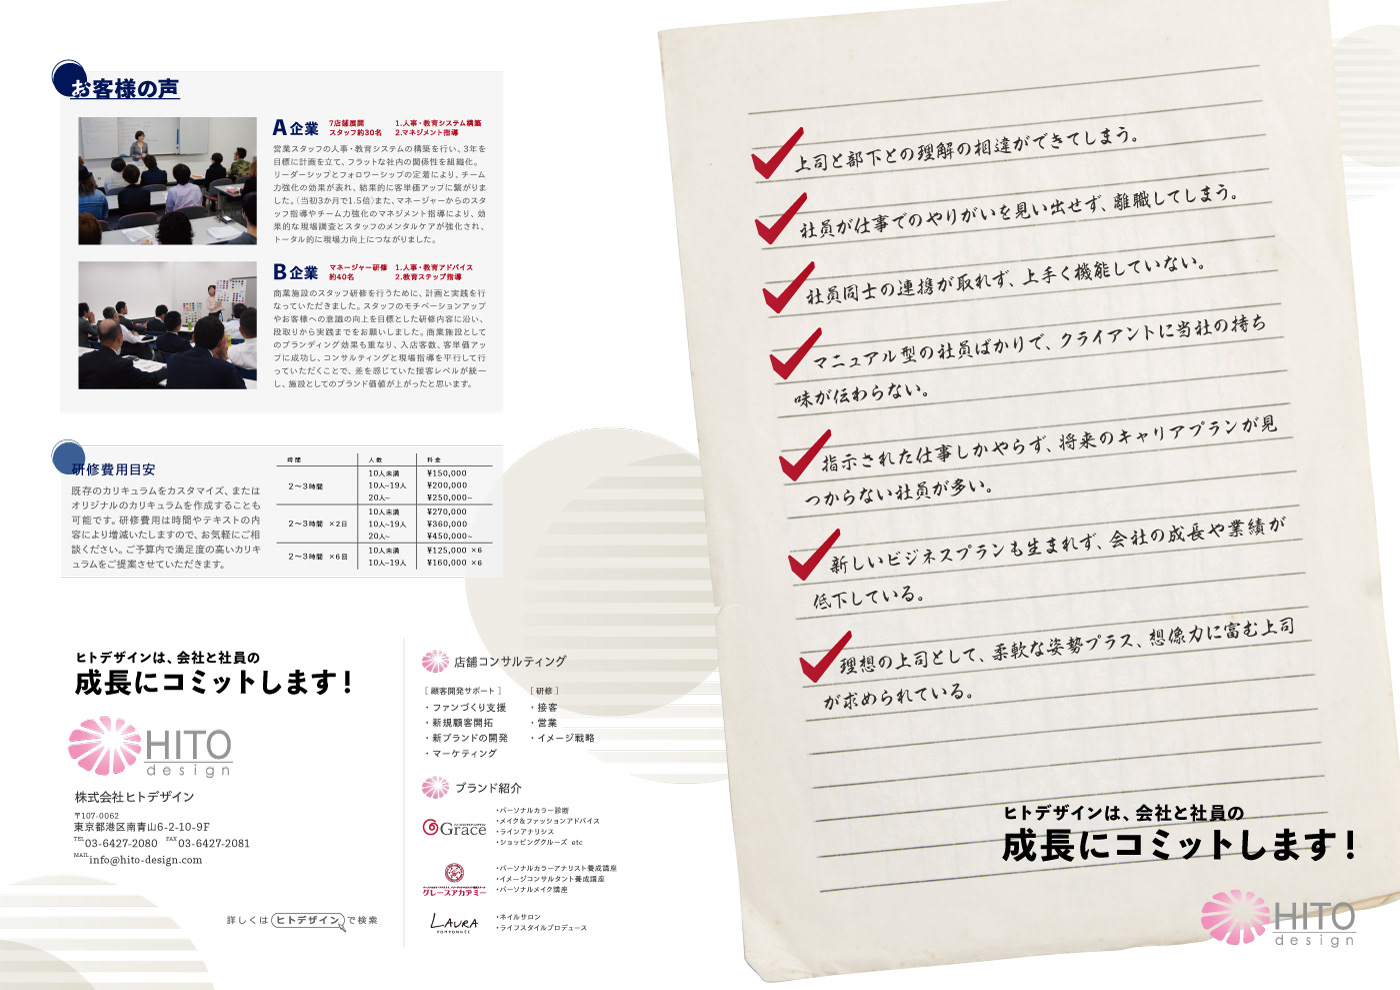 お客様の声
A企業
7店舗展開
スタッフ約30名
1.人事・教育システム構築
2.マネジメント指導
営業スタッフの人事・教育システムの構築を行い、3年を
目標に計画を立て、フラットな社内の関係性を組織化。
リーダーシップとフォロワーシップの定着により、チーム
力強化の効果が表れ、結果的に客単価アップに繋がりま
した。（当初3か月で1.5倍）また、マネージャーからのスタ
ッフ指導やチーム力強化のマネジメント指導により、効
果的な現場調査とスタッフのメンタルケアが強化され、
トータル的に現場力向上につながりました。
B企業
マネージャー研修
約40名
1.人事・教育アドバイス
2.教育ステップ指導
商業施設のスタッフ研修を行うために、計画と実践を行
なっていただきました。スタッフのモチベーションアップ
やお客様への意識の向上を目標とした研修内容に沿い、
段取りから実践までをお願いしました。商業施設として
のブランディング効果も重なり、入店客数、客単価アッ
プに成功し、コンサルティングと現場指導を平行して行
っていただくことで、差を感じていた接客レベルが統一
し、施設としてのブランド価値が上がったと思います。
研修費用目安
既存のカリキュラムをカスタマイズ、または
オリジナルのカリキュラムを作成することも
可能です。研修費用は時間やテキストの内
容により増減いたしますので、お気軽にご相
談ください。ご予算内で満足度の高いカリキ
ュラムをご提案させていただきます。
時間 人数 料金
2〜3時間
10人未満 ¥150,000
10人~19人 ¥200,000
20人~ ¥250,000~
2〜3時間 ×2日
10人未満 ¥270,000
10人~19人 ¥360,000
20人~ ¥450,000~
2〜3時間 ×6回
10人未満 ¥125,000 ×6
10人~19人 ¥160,000 ×6
ヒトデザインは、会社と社員の
成長にコミットします！
HITO
design
株式会社ヒトデザイン
〒107-0062
東京都港区南青山6-2-10-9F
TEL 03-6427-2080 FAX 03-6427-2081
MAIL info@hito-design.com
詳しくは ヒトデザイン で検索
店舗コンサルティング
［ 顧客開発サポート ］
・ファンづくり支援
・新規顧客開拓
・新ブランドの開発
・マーケティング
［ 研修 ］
・接客
・営業
・イメージ戦略
ブランド紹介
Grace
・パーソナルカラー診断
・メイク&ファッションアドバイス
・ラインアナリシス
・ショッピングクルーズ etc
グレースアカデミー
・パーソナルカラーアナリスト養成講座
・イメージコンサルタント養成講座
・パーソナルメイク講座
LAURA
POMPONNÉE
・ネイルサロン
・ライフスタイルプロデュース
上司と部下との理解の相違ができてしまう。
社員が仕事でのやりがいを見い出せず、離職してしまう。
社員同士の連携が取れず、上手く機能していない。
マニュアル型の社員ばかりで、クライアントに当社の持ち
味が伝わらない。
指示された仕事しかやらず、将来のキャリアプランが見
つからない社員が多い。
新しいビジネスプランも生まれず、会社の成長や業績が
低下している。
理想の上司として、柔軟な姿勢プラス、想像力に富む上司
が求められている。
ヒトデザインは、会社と社員の
成長にコミットします！
HITO
design